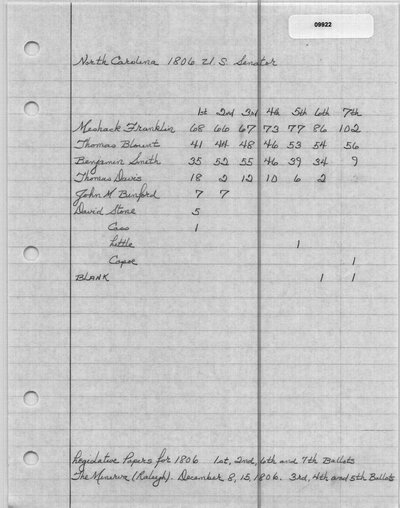 09922
North Carolina 1806 U.S. Senator
1st 2nd 3rd 4th 5th 6th 7th
Meshack Franklin 68 66 67 73 77 86 102
Thomas Blount 41 44 48 46 53 54 56
Benjamin Smith 35 52 55 46 39 34 9
Thomas Davis 18 2 12 10 6 2
John M Binford 7 7
David Stone 5
Cass 1
Little 1
Capee 1
BLANK 1 1
Legislative Papers for 1806 1st, 2nd, 6th and 7th Ballots
The Minerva (Raleigh). December 8, 15, 1806. 3rd, 4th and 5th Ballots